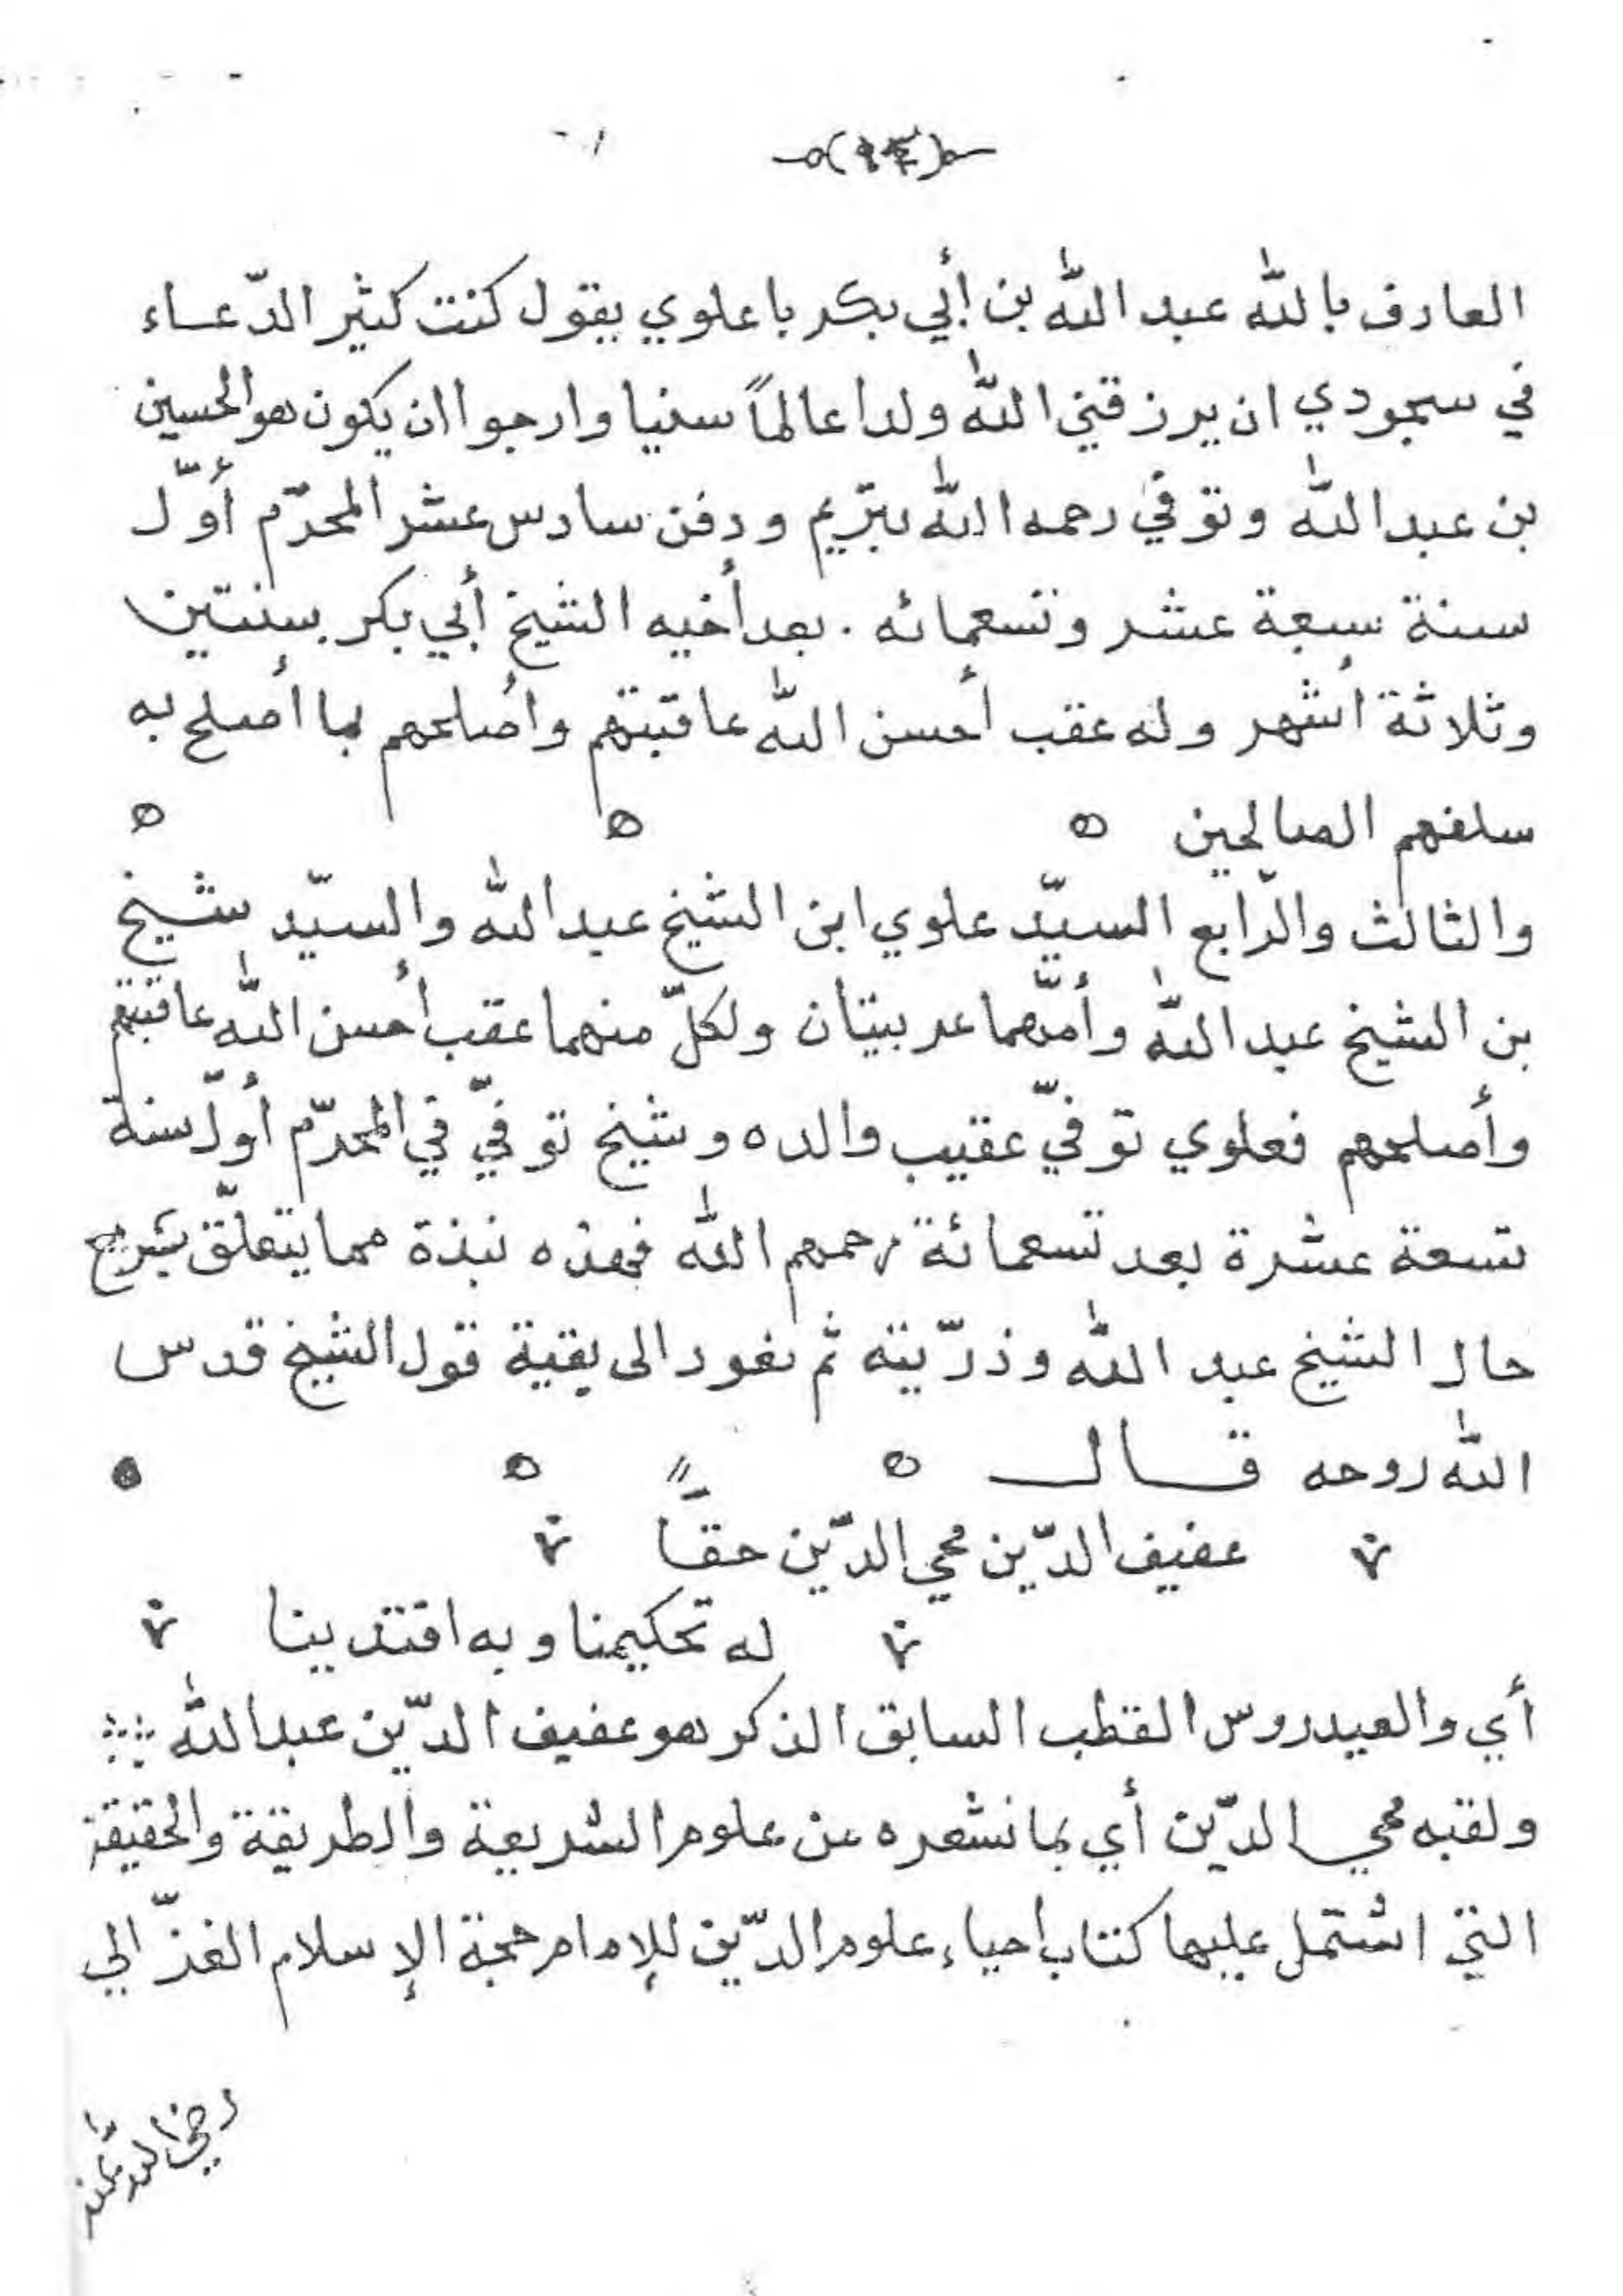 العارف بالله عبد الله بن أبي بكر باعلوي يقول كنت كثير الدّعاء
في سجودي ان يرزقني الله ولدا عالماً سنيا وارجوا ان يكون هو الحسين
بن عبد الله وتوفي رحمه الله بتريم ودفن سادس عشر المحرّم أوّل
سنة سبعة عشر وتسعمائه . بعد أخيه الشيخ أبي بكر بسنتين
وثلاثة أشهر وله عقب أحسن الله عاقبتهم وأصلحهم بما أصلح به
سلفهم الصالحين
والثالث والرّابع السيّد علوي ابن الشيخ عبد الله والسيّد شيخ
بن الشيخ عبد الله وأمّهما عربيتان ولكلّ منهما عقب أحسن الله عاقبتهم
وأصلحهم فعلوي توفيّ عقيب والده وشيخ توفيّ في المحرّم أوّل سنة
تسعة عشرة بعد تسعمائة رحمهم الله فهذه نبذة مما يتعلّق بشرح
حال الشيخ عبد الله وذرّيته ثم نعود الى بقية قول الشيخ قدس
الله روحه قال
عفيف الدّين محي الدّين حقاً
له تحكيمنا وبه اقتدينا
أي والعيدروس القطب السابق الذكر هو عفيف الدّين عبد الله
ولقبه محي الدّين أي بما نشره من علوم الشريعة والطريقة والحقيقة
التي اشتمل عليها كتاب احياء علوم الدّين للإمام حجة الإسلام الغزّالي
رضي الله عنه